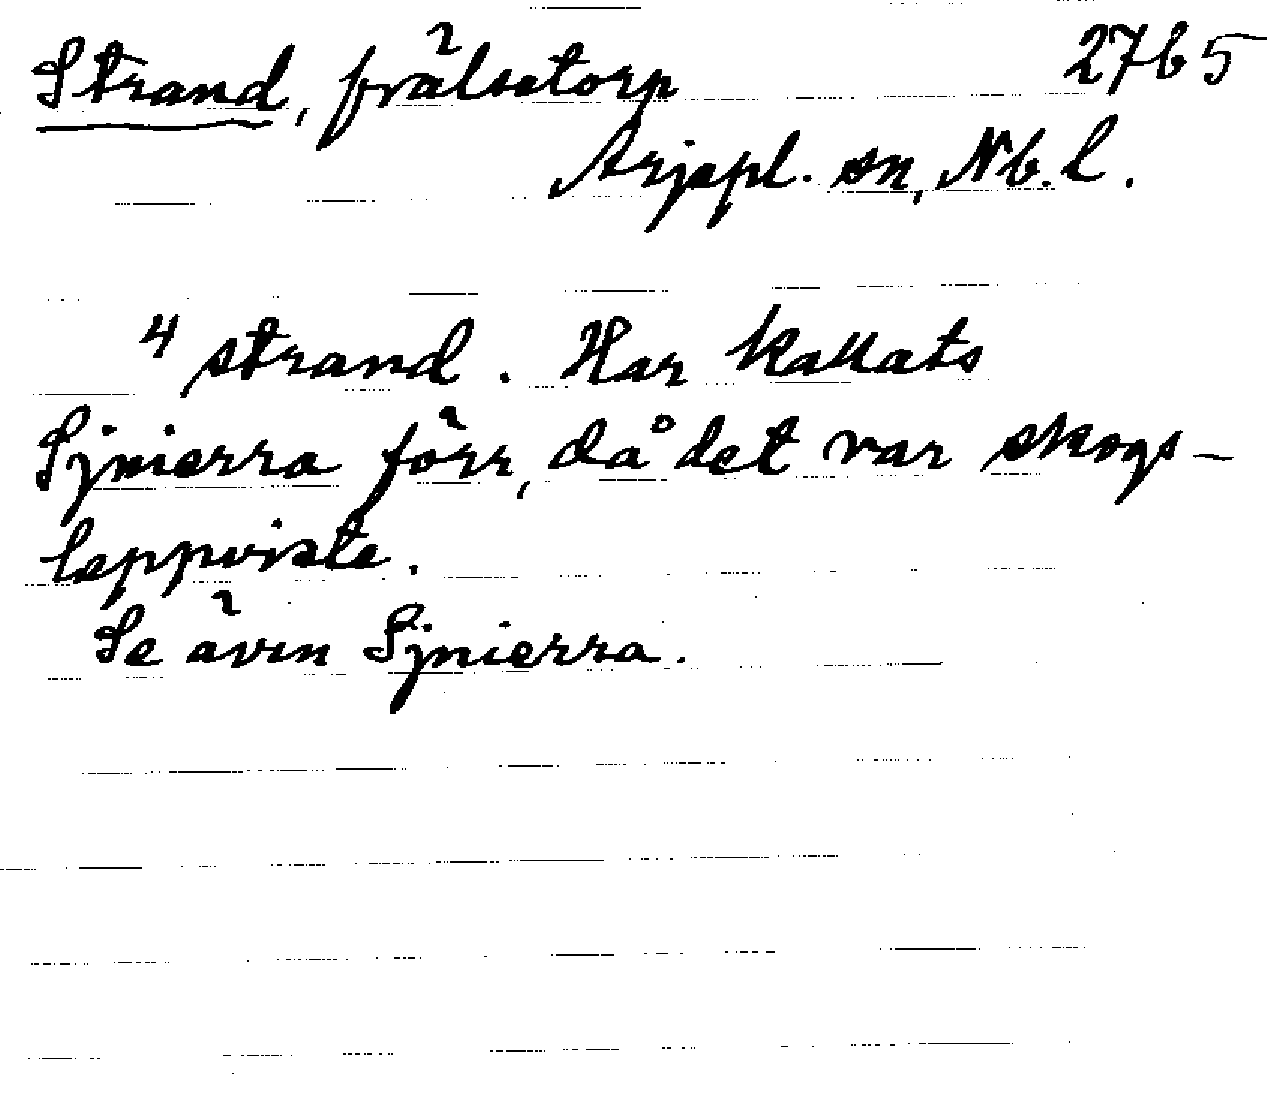 Strand, frälsetorp 2765
Arjepl. sn, Nb. l.
4 strand. Har kallats
Sjnierra förr, då det var skogs-
lappviste.
Se även Sjnierra.